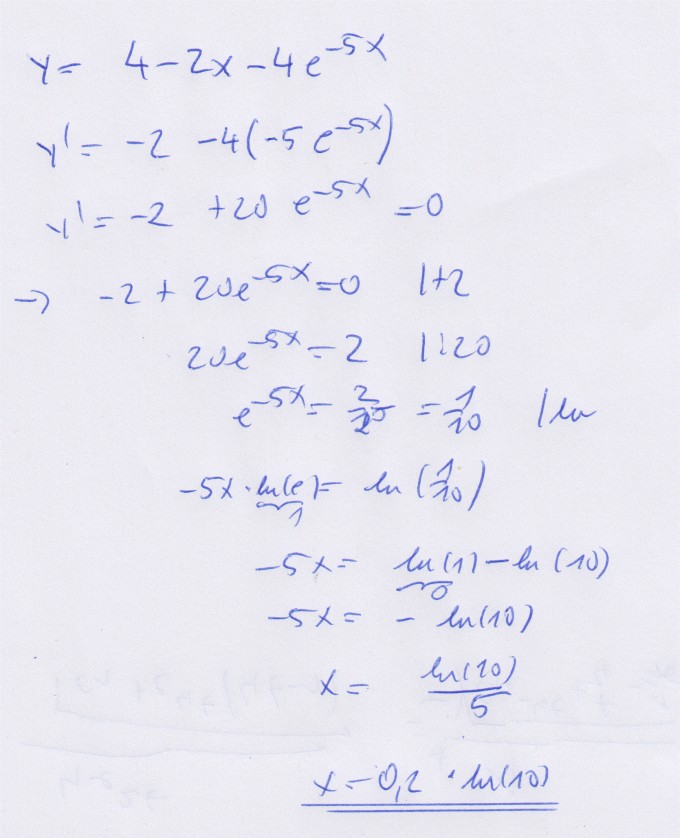 y = 4 - 2x - 4e^{-5x}
y' = -2 -4(-5 e^{-5x})
y' = -2 +20 e^{-5x} = 0
→ -2 + 20e^{-5x} = 0 |+2
20e^{-5x} = 2 |:20
e^{-5x} = 2/20 = 1/10 | ln
-5x · ln(e) = ln (1/10)
1
-5x = ln(1) - ln(10)
0
-5x = - ln(10)
x = ln(10)/5
x = 0,2 · ln(10)